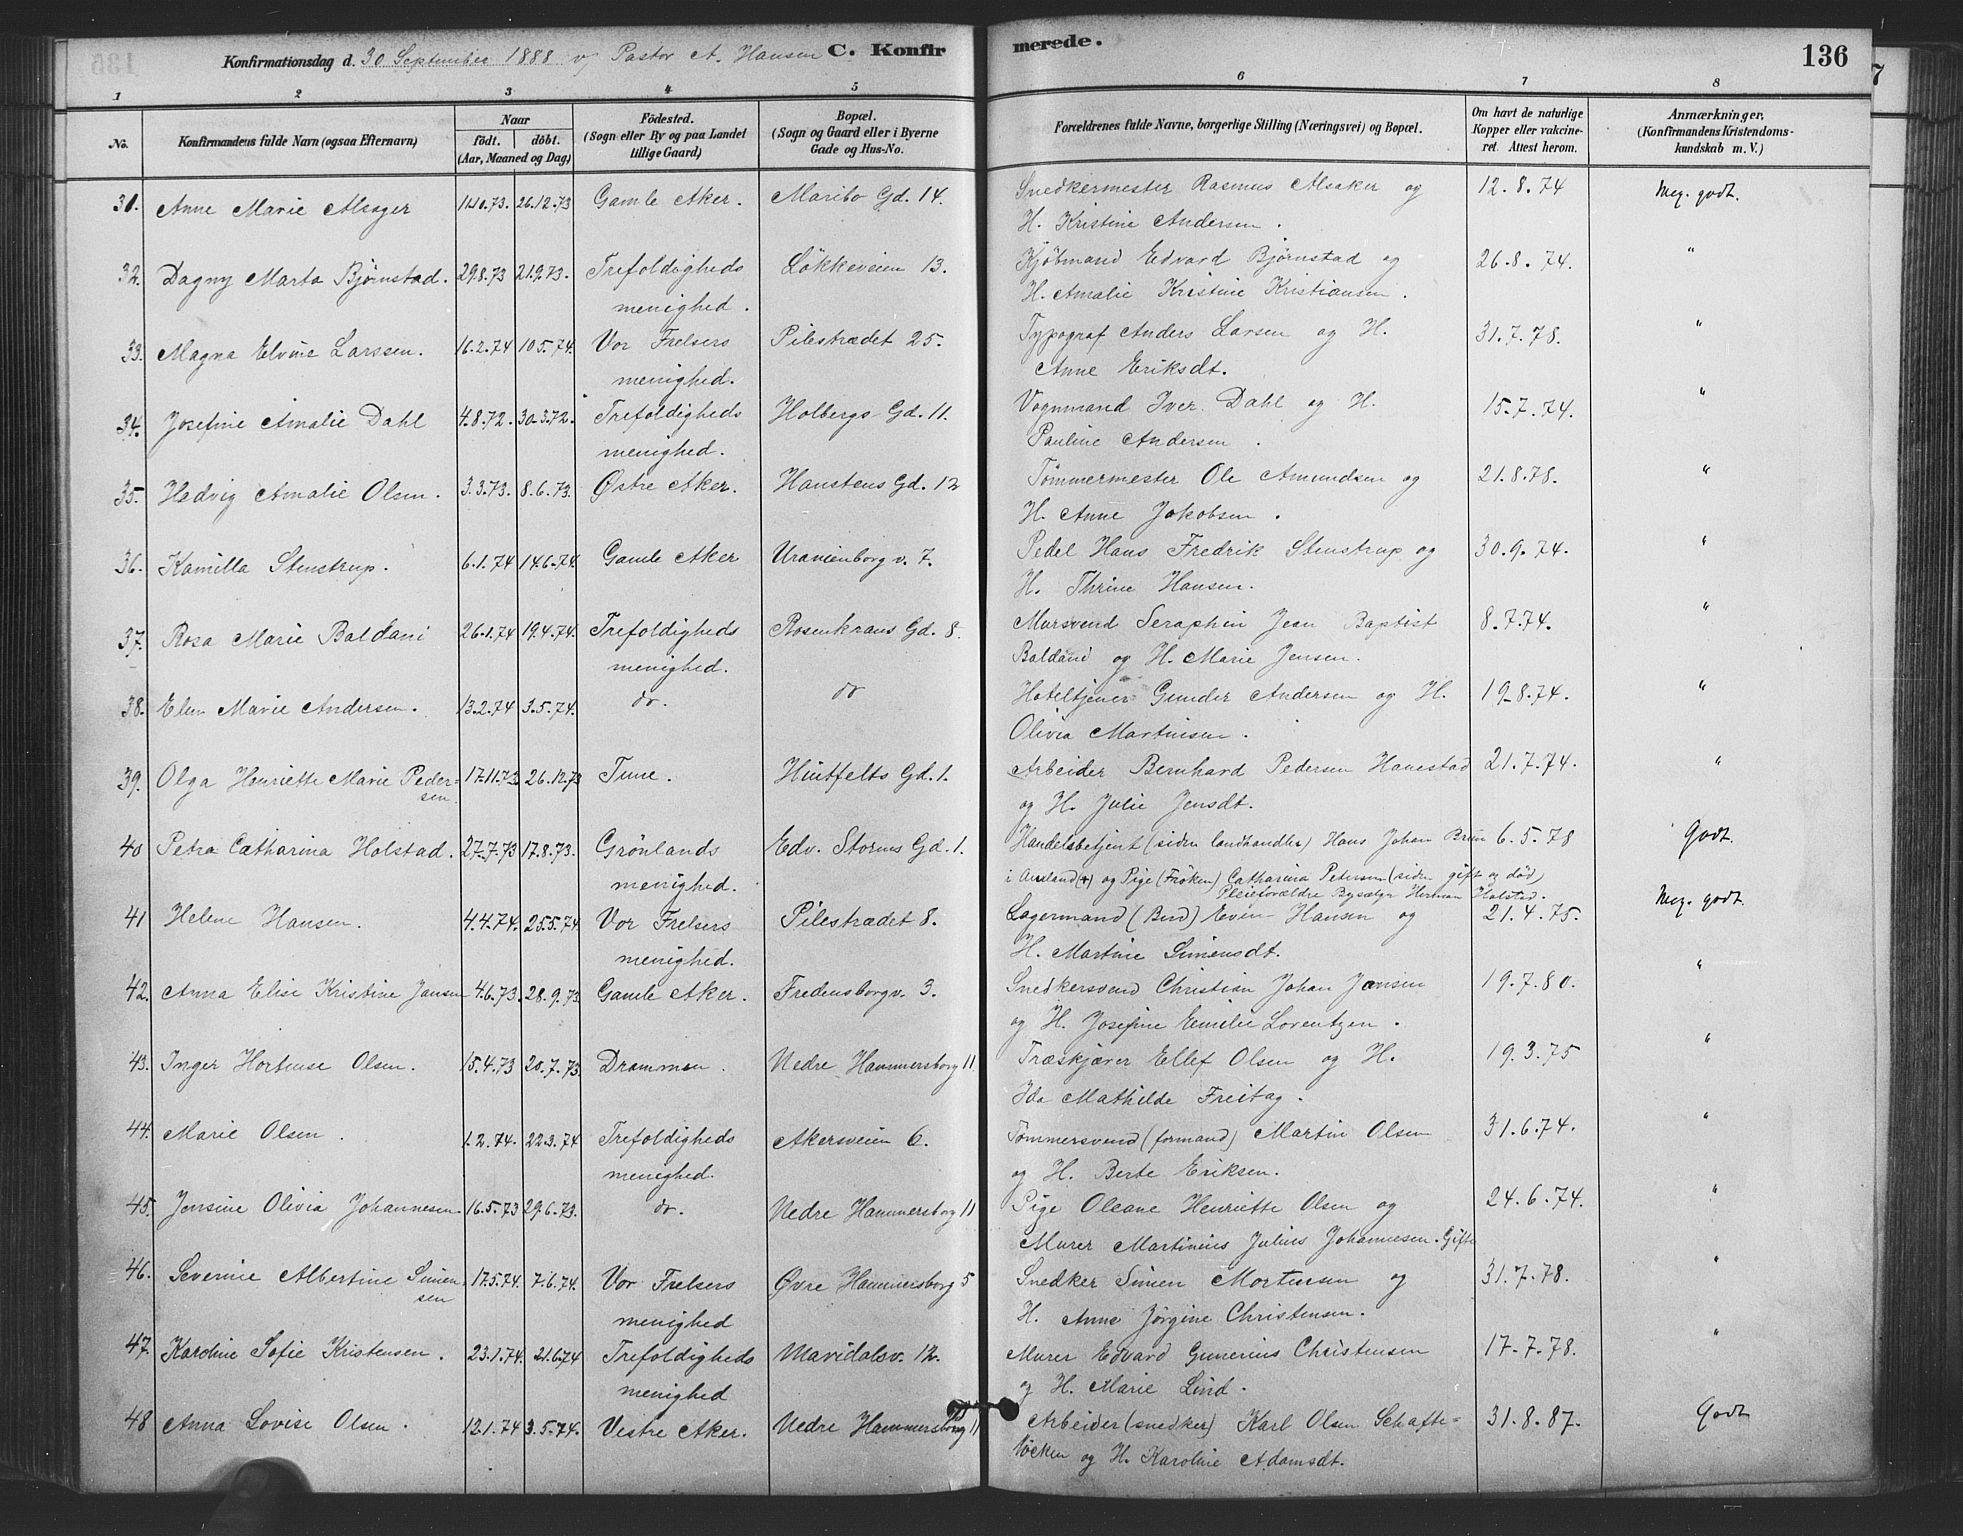 Konfirmationsdag d. 30 September 1888 v/ Pastor A. Hansen C. Konfirmerede. 136
1 2 3 4 5 6 7 8
No. Konfirmandens fulde Navn (ogsaa Efternavn) Naar født. døbt. (Aar, Maaned og Dag) Fødested. (Sogn eller By og paa Landet tillige Gaard) Bopæl. (Sogn og Gaard eller i Byerne Gade og Hus-No. Forældrenes fulde Navne, borgerlige Stilling (Næringsvei) og Bopæl. Om havt de naturlige Kopper eller vakcineret. Attest herom. Anmærkninger, (Konfirmandens Kristendomskundskab m. V.)
31. Anne Marie Alsager 26.12.73 Gamle Aker. Maribo Gd. 14. Snedkermester Rasmus Alsaker og 12.8.74 Meg. godt.
H. Kristine Andersen.
32. Dagny Marta Bjørnstad. 29.8.73 21.9.73. Trefoldigheds Løkkeveien 13. Kjøbmand Edvard Bjørnstad og 26.8.74. "
menighed. H. Amalie Kristine Kristiansen.
33. Magna Elvine Larssen. 16.2.74 10.5.74. Vor Frelsers Pilestrædet 25. Typograf Anders Larsen og H. 31.7.78. "
menighed. Anne Eriksdt.
34. Josefine Amalie Dahl 4.8.72. 30.3.72. Trefoldigheds Holbergs Gd. 11. Vognmand Iver Dahl og H. 15.7.74. "
menighed. Pauline Andersen.
35. Hedvig Amalie Olsen. 3.3.73. 8.6.73. Østre Aker. Hanstens Gd. 12 Tømmermester Ole Amundsen og 21.8.78. "
H. Anne Jakobsen.
36. Kamilla Stenstrup. 6.1.74 14.6.74. Gamle Aker Uranienborg v. 7. Pedel Hans Fredrik Stenstrup og 30.9.74. "
H. Thrine Hansen.
37. Rosa Marie Baldani 26.1.74 19.4.74. Trefoldigheds Rosenkrans Gd. 8. Mursvend Seraphin Jean Baptist 8.7.74. "
menighed. Baldand og H. Marie Jensen.
38. Elen Marie Andersen. 13.2.74 3.5.74. do. do Hoteltjener Gunder Andersen og H. 19.8.74. "
Olivia Martinsen.
39. Olga Henriette Marie Pedersen. 17.11.73 26.12.73 Tune. Huitfelts Gd. 1. Arbeider Bernhard Pedersen Hanestad 21.7.74. "
og H. Julie Jensdt.
40 Petra Catharina Holstad. 27.7.73 17.8.73. Grønlands Edv. Storms Gd. 1. Handelsbetjent (siden landhandler) Hans Johan Bruun 6.5.78 Godt.
menighed. i Aurland (+) og Pige (Frøken) Catharina Petersen (siden gift og død)
Pleieforældre Bysælger Herman Holstad.
41 Helene Hansen. 4.4.74. 25.5.74 Vor Frelsers Pilestrædet 8. Lagermand (Bud) Even Hansen og 21.4.75. Meg. godt.
menighed. H. Martine Simensdt.
42. Anna Elise Kristine Jansen 4.6.73. 28.9.73. Gamle Aker. Fredensborgv. 3. Snedkersvend Christian Johan Jansen 19.7.80. "
og H. Josefine Emilie Lorentzen.
43. Inger Hortense Olsen. 15.4.73 20.7.73. Drammen. Nedre Hammersborg 11 Træskjærer Ellef Olsen og H. 19.3.75 "
Ida Mathilde Freitag.
44. Marie Olsen. 1.2.74. 22.3.74 Trefoldigheds Akersveien 6. Tømmersvend (formand) Martin Olsen 31.6.74. "
menighed. og H. Berte Eriksen.
45. Jensine Olivia Johannesen. 16.5.73 29.6.73. do. Nedre Hammersborg 11 Pige Oleane Henriette Olsen og 24.6.74. "
Murer Martinius Julius Johannesen. Gifte
46. Severine Albertine Simensen 17.5.74. 7.6.74. Vor Frelsers Øvre Hammersborg 5 Snedker Simen Mortensen og 31.7.78. "
menighed H. Anne Jørgine Christensen.
47. Karoline Sofie Kristensen. 23.1.74. 21.6.74 Trefoldigheds Maridalsv. 12. Murer Edvard Gunerius Christensen 17.7.78. "
menighed og H. Marie Lind.
48 Anna Lovise Olsen. 12.1.74 3.5.74. Vestre Aker. Nedre Hammersborg 11 Arbeider (snedker) Karl Olsen Schafte- 31.8.87. Godt
løcken og H. Karoline Adamsdt.